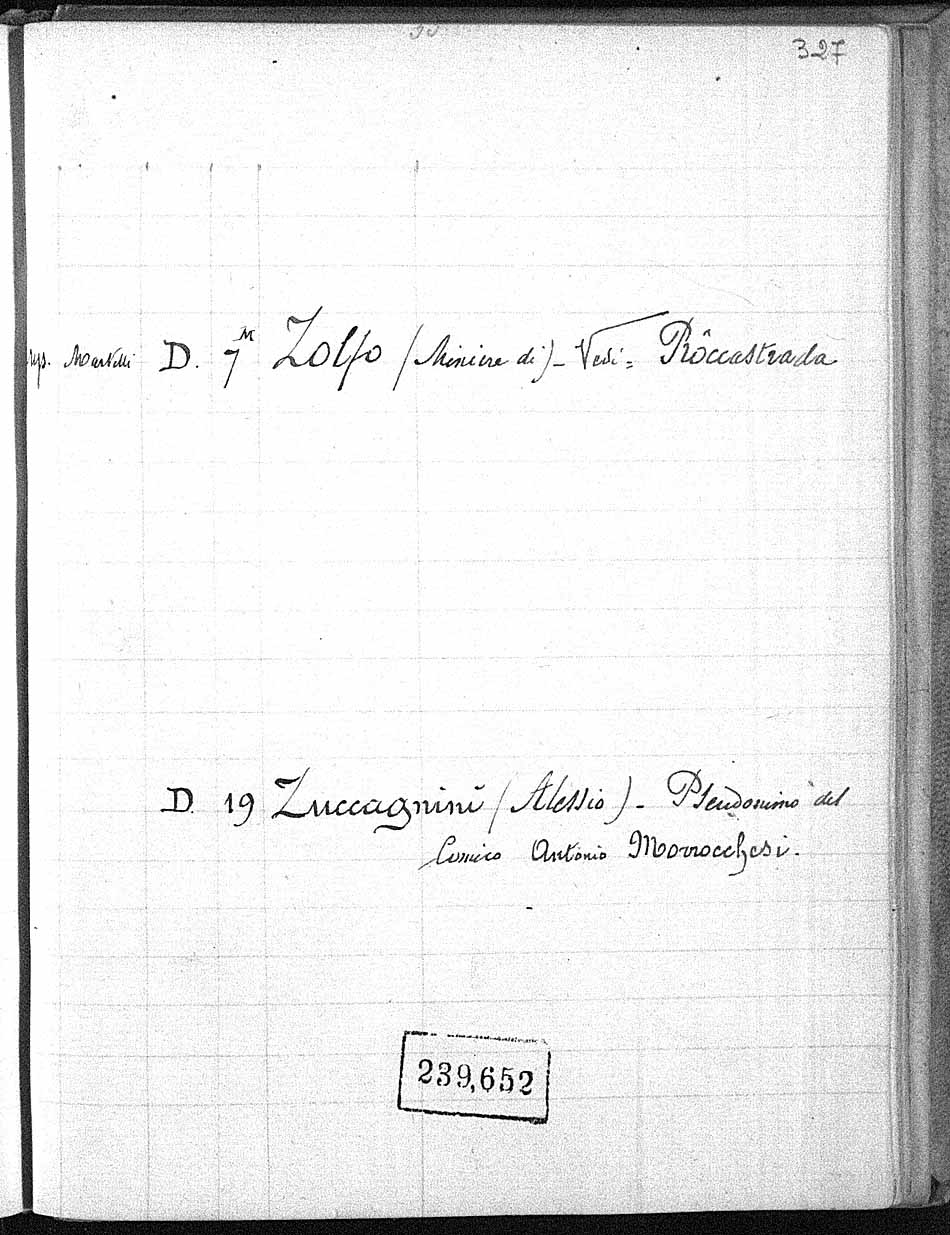 327
Martelli D. 7 Zolfo (Miniere di) - Vedi = Roccastrada
D. 19 Zuccagnini (Alessio) - Pseudonimo del
Comico Antonio Morrocchesi.
239,652